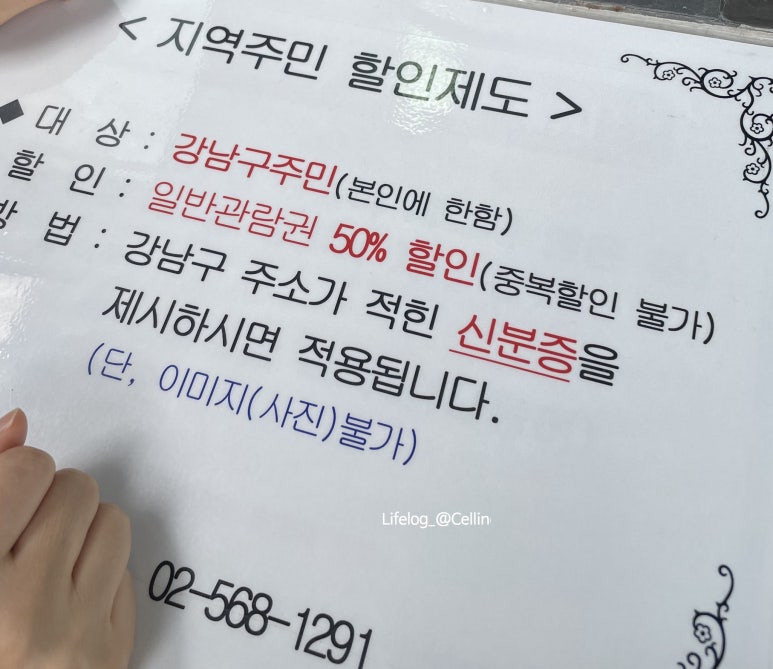 < 지역주민 할인제도 >
◆ 대 상 : 강남구주민(본인에 한함)
할 인 : 일반관람권 50% 할인(중복할인 불가)
방 법 : 강남구 주소가 적힌 신분증을
제시하시면 적용됩니다.
(단, 이미지(사진)불가)
Lifelog_@Cellin
02-568-1291